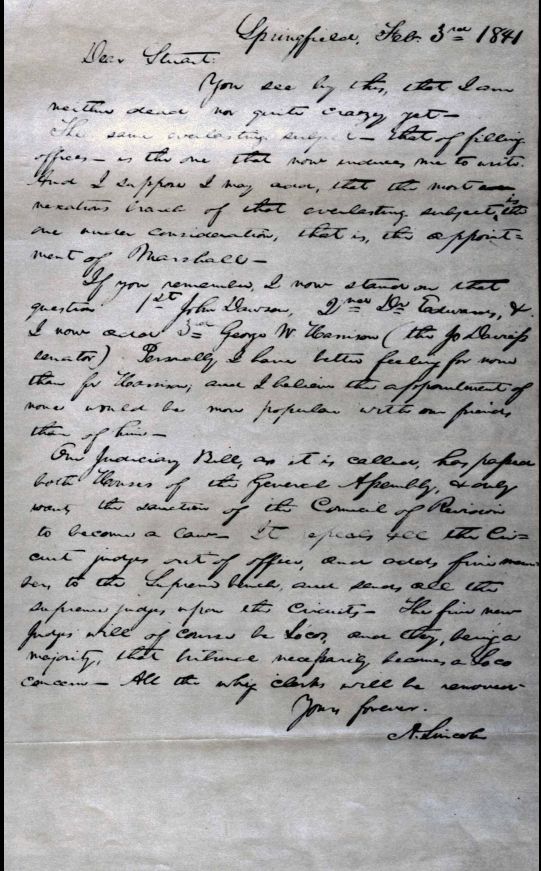 Springfield, Feb. 3rd 1841
Dear Stuart:
You see by this, that I am
neither dead nor quite crazy yet—
The same everlasting subject— that of filling
offices— is the one that now induces me to write.
And I suppose I may add, that the most
vexatious branch of that everlasting subject, is the
one under consideration, that is, the appoint=
ment of Marshall—
If you remember, I now stand on that
question 1st John Dawson, 2nd Dr Eastman, &.
I now add 3rd George W Harrison (the Jo Daviess
senator) Personally I have better feeling for none
than for Harrison; and I believe the appointment of
none would be more popular with our friends
than of him—
Our Judiciary Bill, as it is called, has passed
both Houses of the General Assembly, & only
wants the sanction of the Council of Revision
to become a law— It repeals all the Cir=
cuit judges out of office, and adds five mem
bers to the Supreme bench, and sends all the
supreme judges upon the Circuits— The five new
Judges will of course be Locos, and they, being a
majority, that tribunal necessarily becomes a Loco
concern— All the whig clerks will be removed—
Yours forever.
A. Lincoln